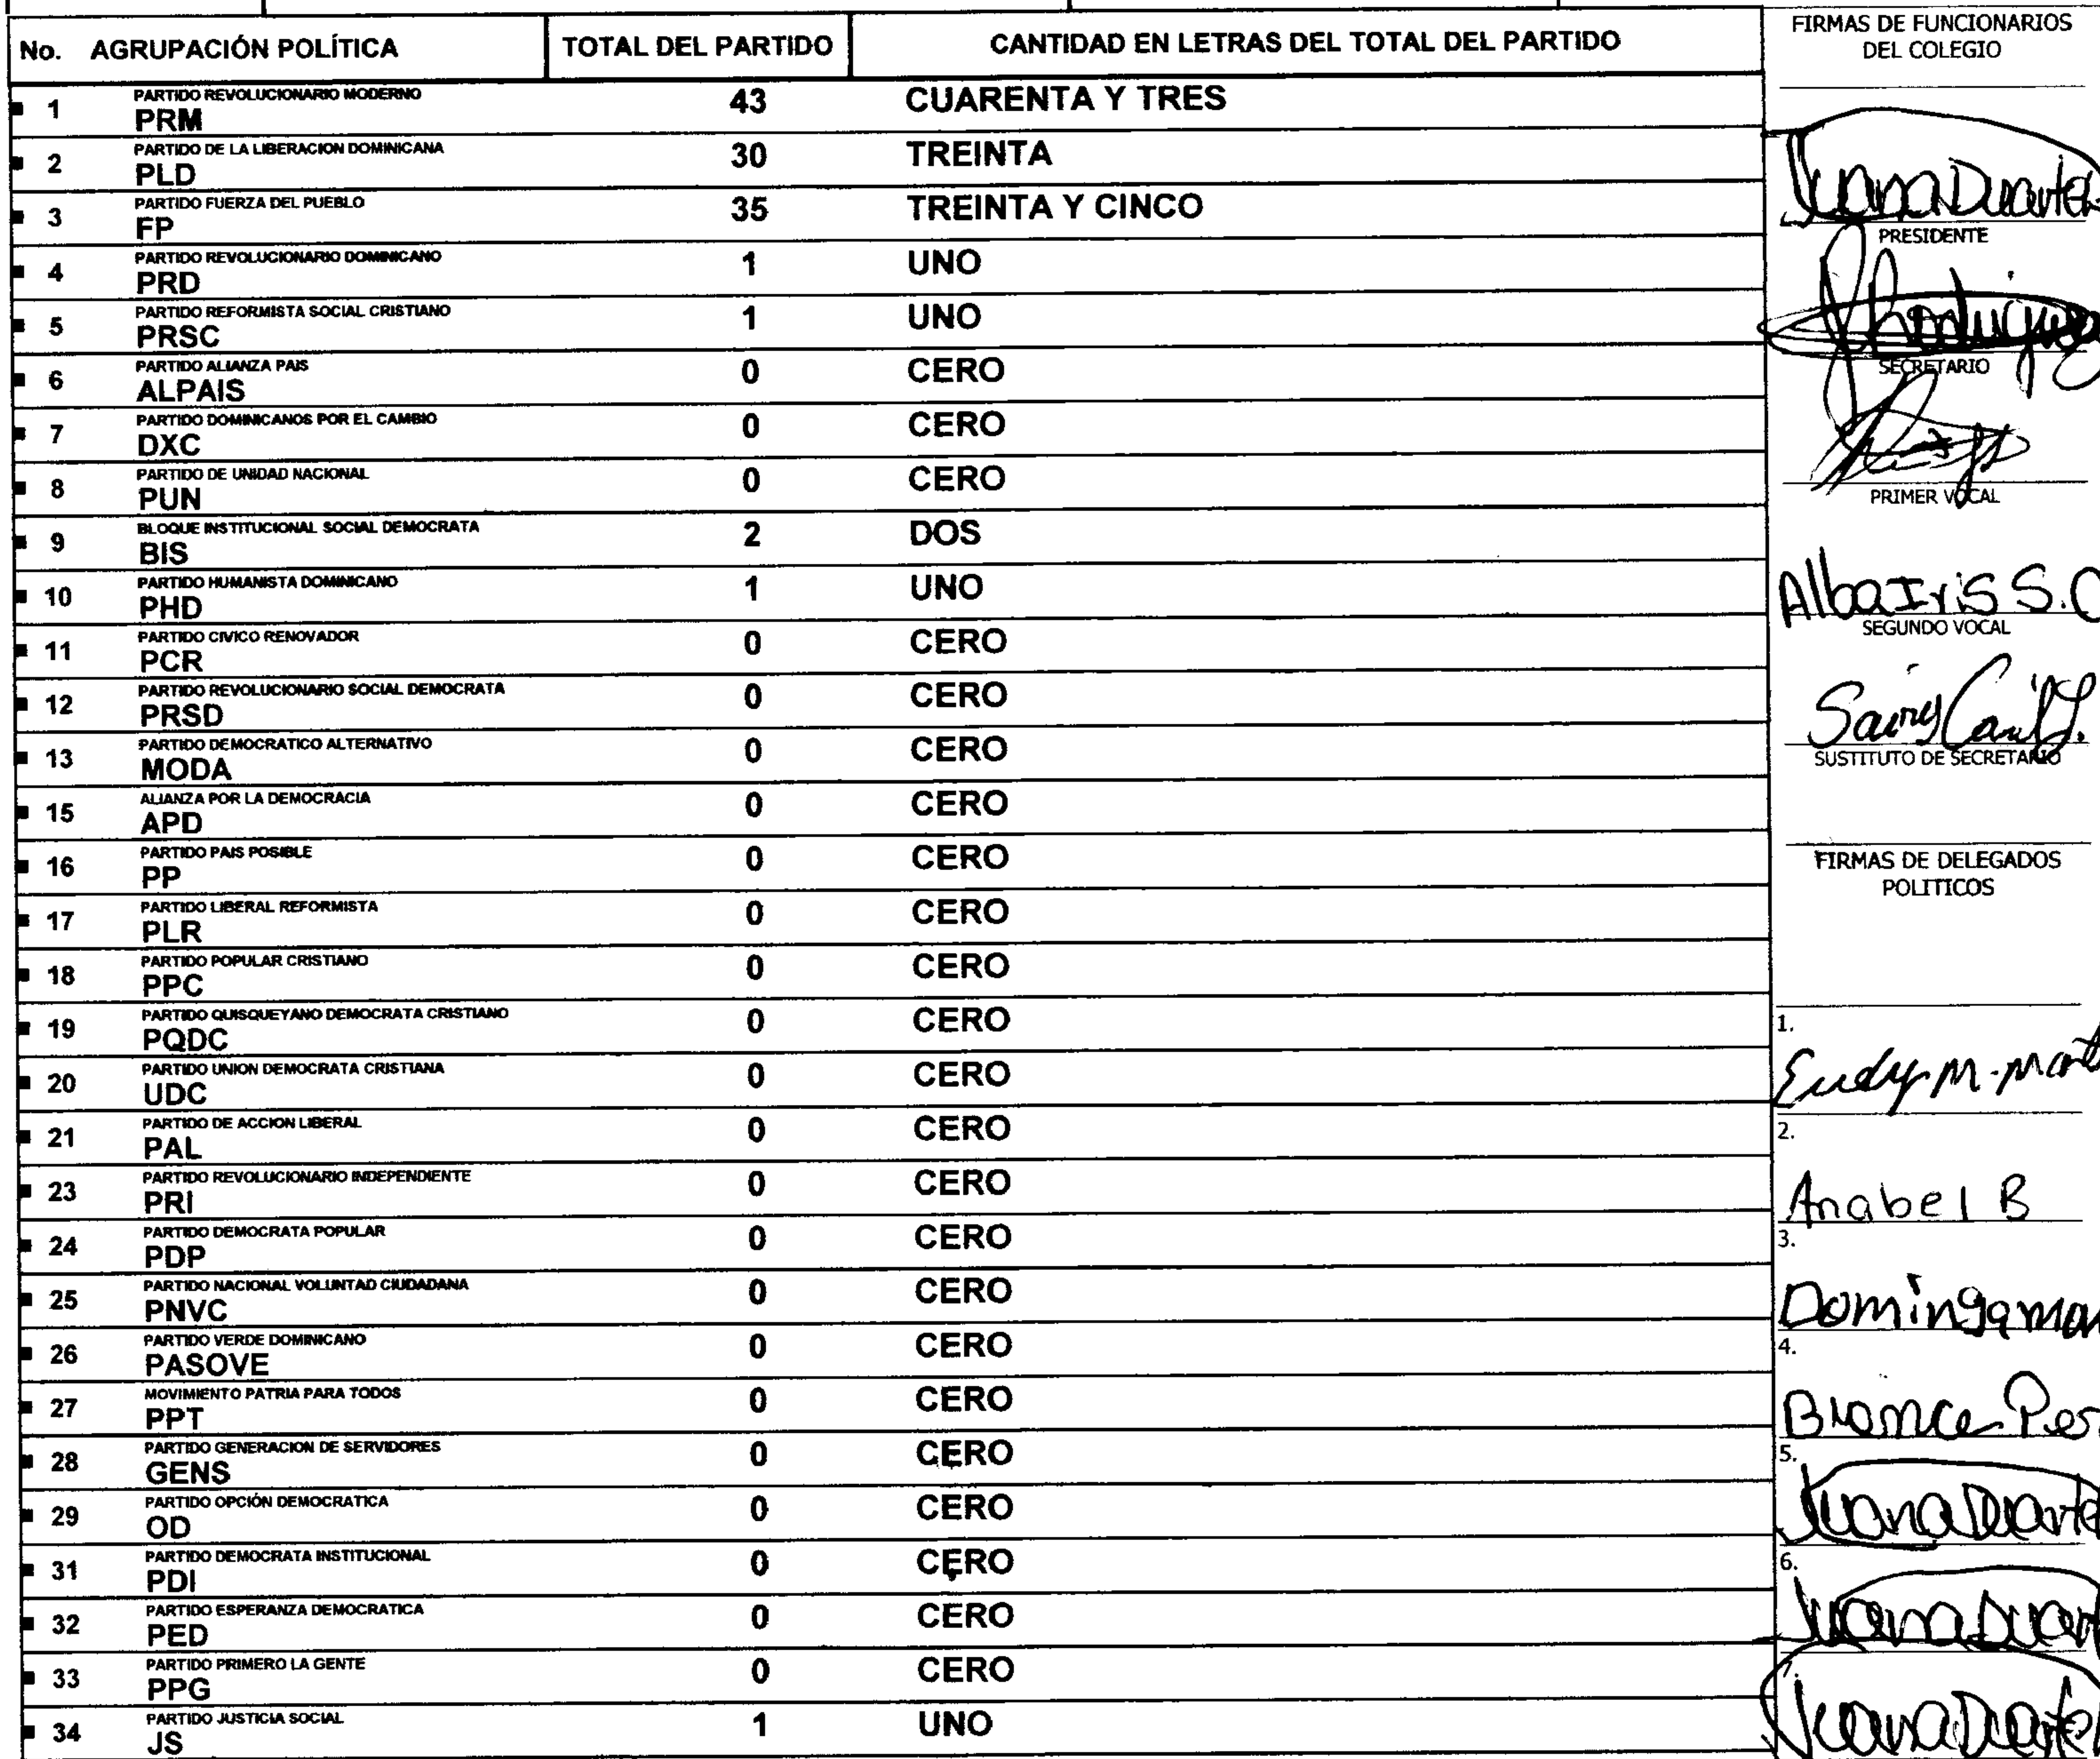 No. AGRUPACIÓN POLÍTICA TOTAL DEL PARTIDO CANTIDAD EN LETRAS DEL TOTAL DEL PARTIDO
1 PARTIDO REVOLUCIONARIO MODERNO
PRM 43 CUARENTA Y TRES
2 PARTIDO DE LA LIBERACION DOMINICANA
PLD 30 TREINTA
3 PARTIDO FUERZA DEL PUEBLO
FP 35 TREINTA Y CINCO
4 PARTIDO REVOLUCIONARIO DOMINICANO
PRD 1 UNO
5 PARTIDO REFORMISTA SOCIAL CRISTIANO
PRSC 1 UNO
6 PARTIDO ALIANZA PAIS
ALPAIS 0 CERO
7 PARTIDO DOMINICANOS POR EL CAMBIO
DXC 0 CERO
8 PARTIDO DE UNIDAD NACIONAL
PUN 0 CERO
9 BLOQUE INSTITUCIONAL SOCIAL DEMOCRATA
BIS 2 DOS
10 PARTIDO HUMANISTA DOMINICANO
PHD 1 UNO
11 PARTIDO CIVICO RENOVADOR
PCR 0 CERO
12 PARTIDO REVOLUCIONARIO SOCIAL DEMOCRATA
PRSD 0 CERO
13 PARTIDO DEMOCRATICO ALTERNATIVO
MODA 0 CERO
15 ALIANZA POR LA DEMOCRACIA
APD 0 CERO
16 PARTIDO PAIS POSIBLE
PP 0 CERO
17 PARTIDO LIBERAL REFORMISTA
PLR 0 CERO
18 PARTIDO POPULAR CRISTIANO
PPC 0 CERO
19 PARTIDO QUISQUEYANO DEMOCRATA CRISTIANO
PQDC 0 CERO
20 PARTIDO UNION DEMOCRATA CRISTIANA
UDC 0 CERO
21 PARTIDO DE ACCION LIBERAL
PAL 0 CERO
23 PARTIDO REVOLUCIONARIO INDEPENDIENTE
PRI 0 CERO
24 PARTIDO DEMOCRATA POPULAR
PDP 0 CERO
25 PARTIDO NACIONAL VOLUNTAD CIUDADANA
PNVC 0 CERO
26 PARTIDO VERDE DOMINICANO
PASOVE 0 CERO
27 MOVIMIENTO PATRIA PARA TODOS
PPT 0 CERO
28 PARTIDO GENERACION DE SERVIDORES
GENS 0 CERO
29 PARTIDO OPCIÓN DEMOCRATICA
OD 0 CERO
31 PARTIDO DEMOCRATA INSTITUCIONAL
PDI 0 CERO
32 PARTIDO ESPERANZA DEMOCRATICA
PED 0 CERO
33 PARTIDO PRIMERO LA GENTE
PPG 0 CERO
34 PARTIDO JUSTICIA SOCIAL
JS 1 UNO
FIRMAS DE FUNCIONARIOS
DEL COLEGIO
Juana Duarte
PRESIDENTE
SECRETARIO
PRIMER VOCAL
Alba Iris S. C
SEGUNDO VOCAL
SUSTITUTO DE SECRETARIO
FIRMAS DE DELEGADOS
POLITICOS
1.
Eudy M. mart
2.
Anabel B
3.
Dominga mar
4.
5.
Juana Duarte
6.
Juana Duart
7.
Juana Duarte